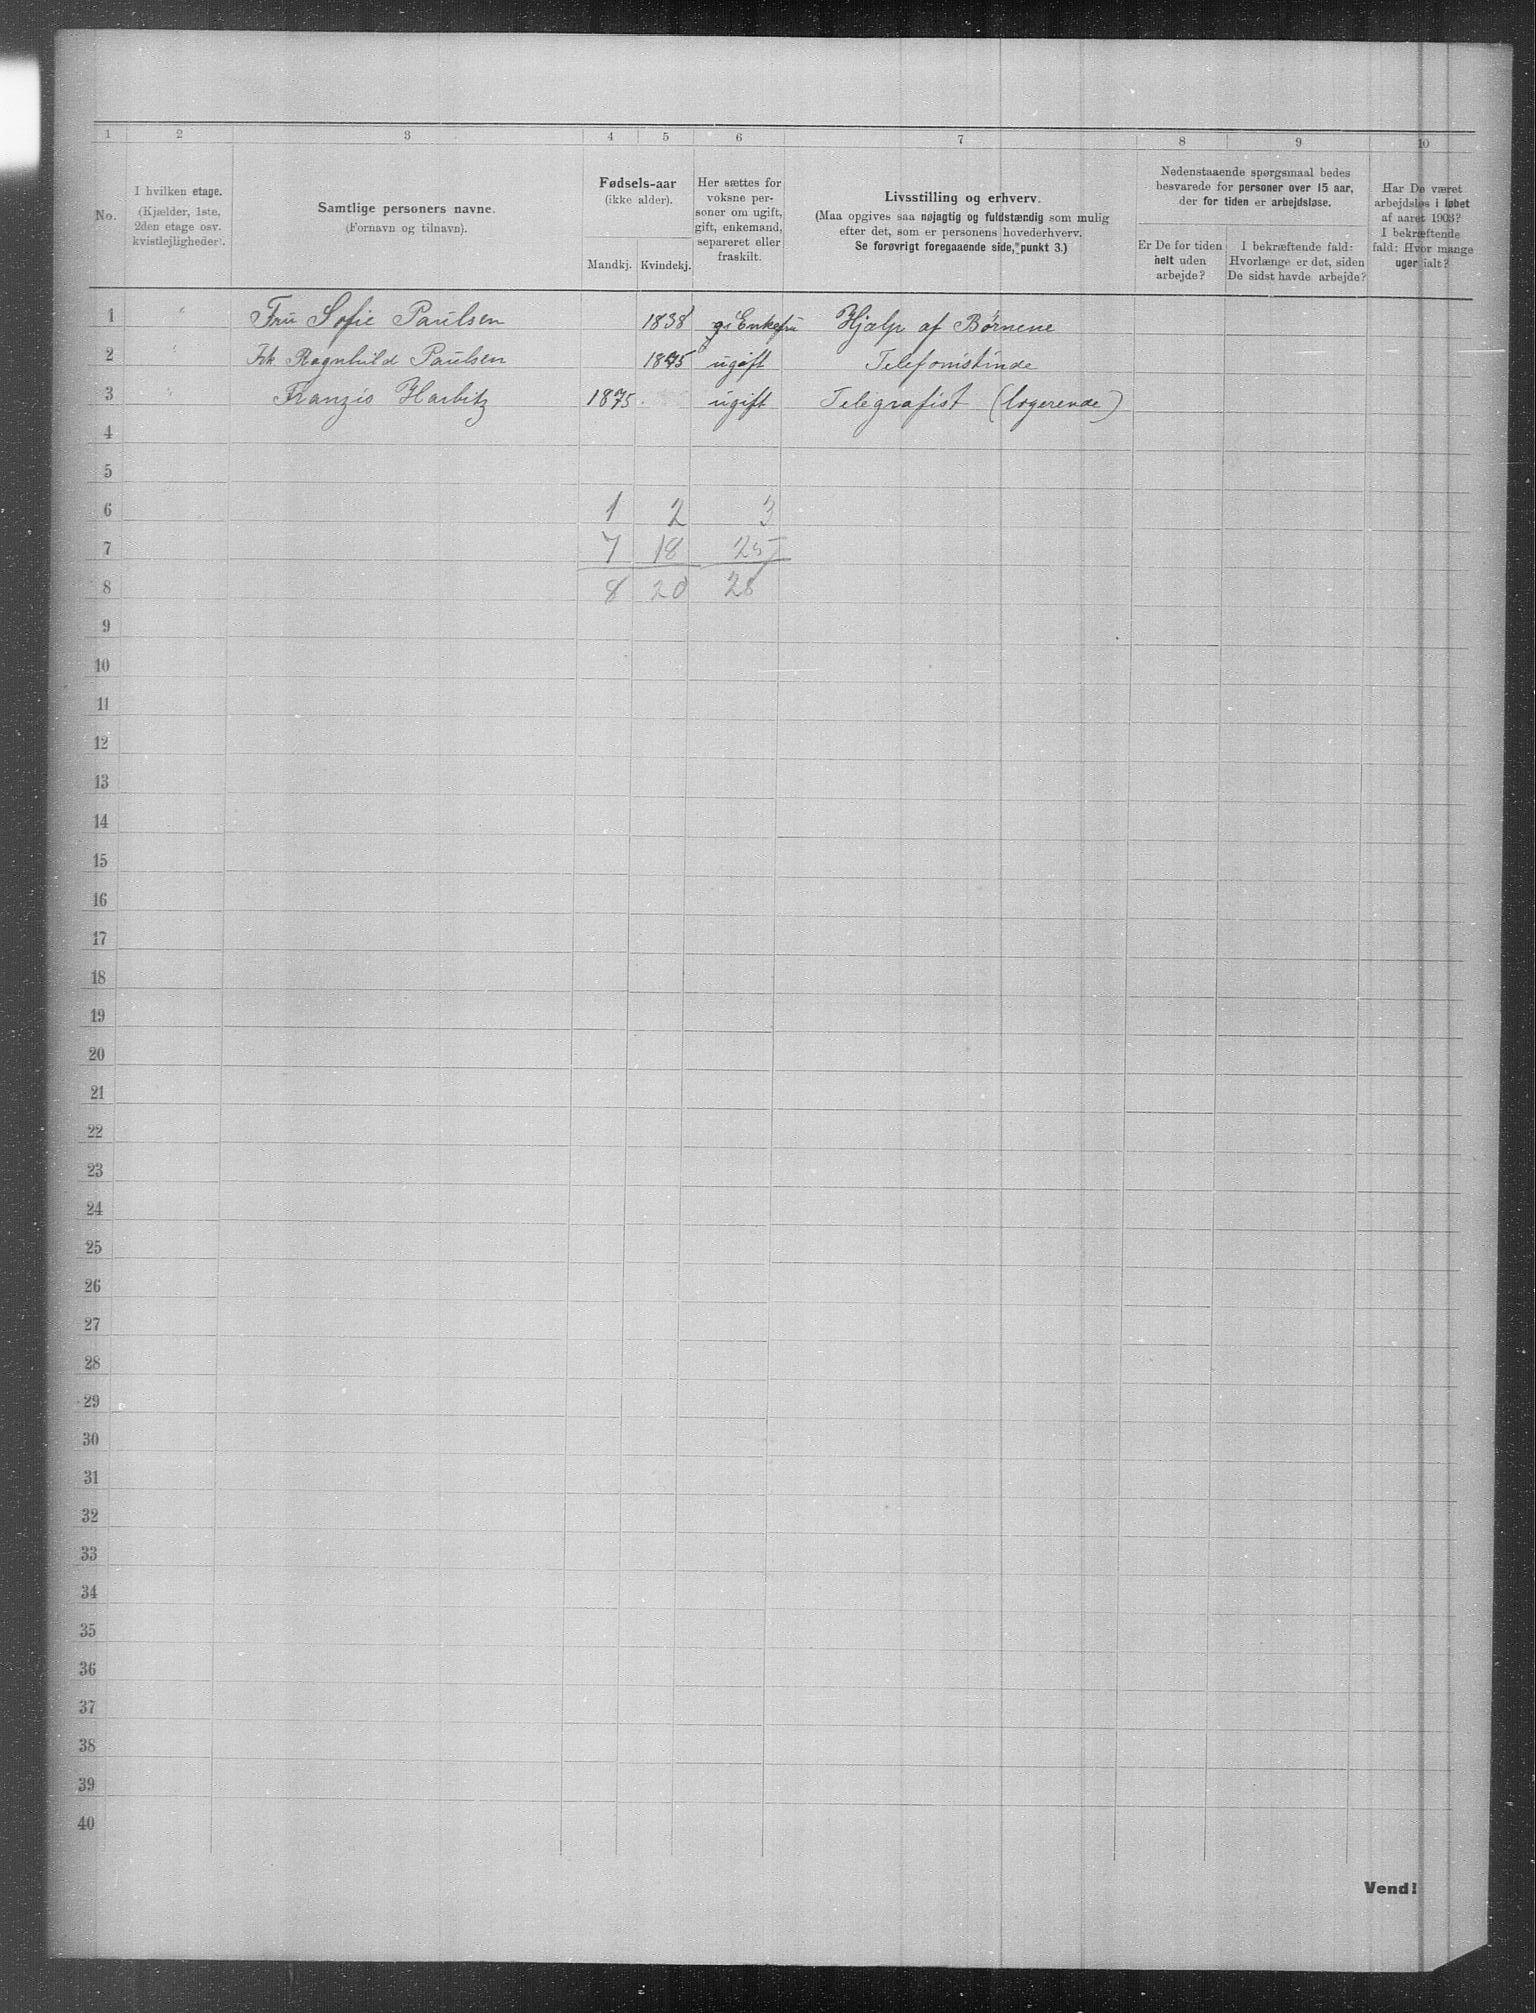 1 2 3 4 5 6 7 8 9 10
No.
I hvilken etage.
(Kjælder, 1ste,
2den etage osv.
kvistlejligheder).
Samtlige personers navne.
(Fornavn og tilnavn).
Fødsels-aar
(ikke alder).
Mandkj. Kvindekj.
Her sættes for
voksne per-
soner om ugift,
gift, enkemand,
separeret eller
fraskilt.
Livsstilling og erhverv.
(Maa opgives saa nøjagtig og fuldstændig som mulig
efter det, som er personens hovederhverv.
Se forøvrigt foregaaende side, punkt 3.)
Nedenstaaende spørgsmaal bedes
besvarede for personer over 15 aar,
der for tiden er arbejdsløse.
Er De for tiden
helt uden
arbejde?
I bekræftende fald:
Hvorlænge er det, siden
De sidst havde arbejde?
Har De været
arbejdsløs i løbet
af aaret 1903?
I bekræftende
fald: Hvor mange
uger ialt?
1 Fru Sofie Paulsen 1838 Enkefru Hjælp af Børnene
2 Frk Ragnhild Paulsen 1875 ugift Telefonistinde
3 Franzis Harbitz 1875 ugift Telegrafist (logerende)
4
5
6 1 2 3
7 7 18 25
8 8 20 28
9
10
11
12
13
14
15
16
17
18
19
20
21
22
23
24
25
26
27
28
29
30
31
32
33
34
35
36
37
38
39
40
Vend!